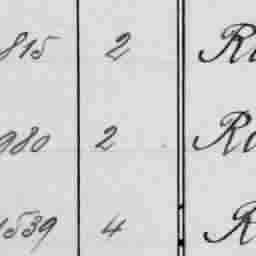 815 2 Ra
980 2 Ra
1539 4 R